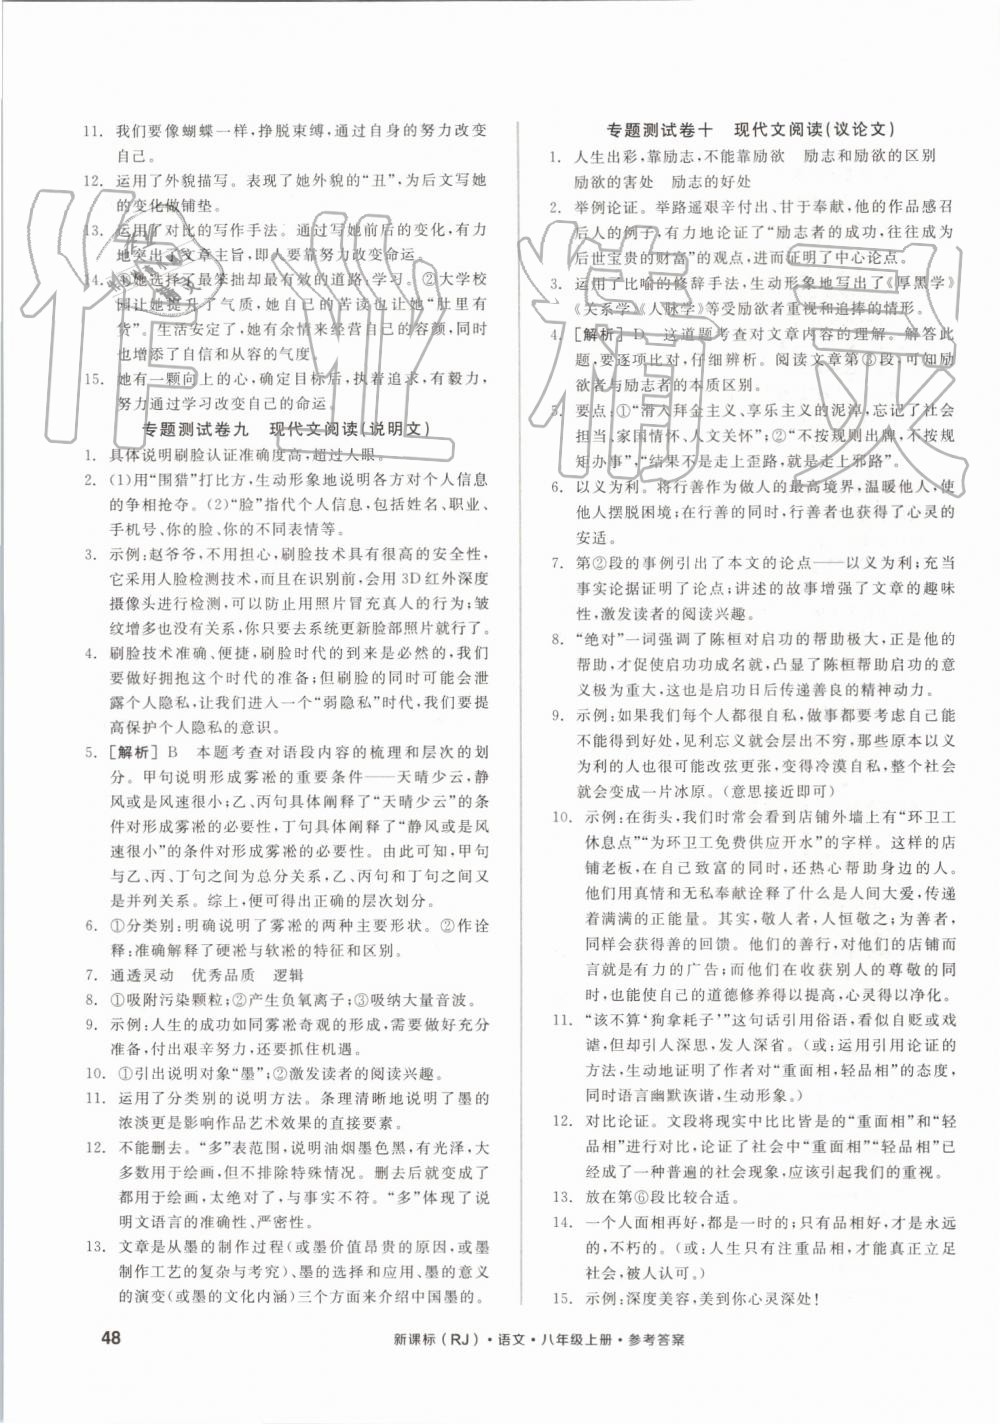 11. 我们要像蝴蝶一样,挣脱束缚,通过自身的努力改变
自己。
12. 运用了外貌描写。表现了她外貌的“丑”,为后文写她
的变化做铺垫。
13. 运用了对比的写作手法。通过写她前后的变化,有力
地突出了文章主旨,即人要靠努力改变命运。
14. ①她选择了最笨拙却最有效的道路,学习。②大学校
园让她提升了气质,她自己的苦读也让她“肚里有
货”。生活安定了,她有余情来经营自己的容颜,同时
也增添了自信和从容的气度。
15. 她有一颗向上的心,确定目标后,执着追求,有毅力,
努力通过学习改变自己的命运。
专题测试卷九 现代文阅读(说明文)
1. 具体说明刷脸认证准确度高,超过人眼。
2. (1)用“围猎”打比方,生动形象地说明各方对个人信息
的争相抢夺。(2)“脸”指代个人信息,包括姓名、职业、
手机号、你的脸、你的不同表情等。
3. 示例:赵爷爷,不用担心,刷脸技术具有很高的安全性,
它采用人脸检测技术,而且在识别前,会用3D红外深度
摄像头进行检测,可以防止用照片冒充真人的行为;皱
纹增多也没有关系,你只要去系统更新脸部照片就行了。
4. 刷脸技术准确、便捷,刷脸时代的到来是必然的,我们
要做好拥抱这个时代的准备;但刷脸的同时可能会泄
露个人隐私,让我们进入一个“弱隐私”时代,我们要提
高保护个人隐私的意识。
5. [解析] B 本题考查对语段内容的梳理和层次的划
分。甲句说明形成雾凇的重要条件——天晴少云,静
风或是风速很小;乙、丙句具体阐释了“天晴少云”的条
件对形成雾凇的必要性,丁句具体阐释了“静风或是风
速很小”的条件对形成雾凇的必要性。由此可知,甲句
与乙、丙、丁句之间为总分关系,乙、丙句和丁句之间又
是并列关系。综上,便可得出正确的层次划分。
6. ①分类别:明确说明了雾凇的两种主要形状。②作诠
释:准确解释了硬凇与软凇的特征和区别。
7. 通透灵动 优秀品质 逻辑
8. ①吸附污染颗粒;②产生负氧离子;③吸纳大量音波。
9. 示例:人生的成功如同雾凇奇观的形成,需要做好充分
准备,付出艰辛努力,还要抓住机遇。
10. ①引出说明对象“墨”;②激发读者的阅读兴趣。
11. 运用了分类别的说明方法。条理清晰地说明了墨的
浓淡更是影响作品艺术效果的直接要素。
12. 不能删去。“多”表范围,说明油烟墨色黑,有光泽,大
多数用于绘画,但不排除特殊情况。删去后就变成了
都用于绘画,太绝对了,与事实不符。“多”体现了说
明文语言的准确性、严密性。
13. 文章是从墨的制作过程(或墨价值昂贵的原因,或墨
制作工艺的复杂与考究)、墨的选择和应用、墨的意义
的演变(或墨的文化内涵)三个方面来介绍中国墨的。
专题测试卷十 现代文阅读(议论文)
1. 人生出彩,靠励志,不能靠励欲 励志和励欲的区别
励欲的害处 励志的好处
2. 举例论证。举路遥艰辛付出、甘于奉献,他的作品感召
后人的例子,有力地论证了“励志者的成功,往往成为
后世宝贵的财富”的观点,进而证明了中心论点。
3. 运用了比喻的修辞手法,生动形象地写出了《厚黑学》
《关系学》《人脉学》等受励欲者重视和追捧的情形。
4. [解析] D 这道题考查对文章内容的理解。解答此
题,要逐项比对,仔细辨析。阅读文章第⑧段,可知励
欲者与励志者的本质区别。
5. 要点:①“滑入拜金主义、享乐主义的泥淖,忘记了社会
担当、家国情怀、人文关怀”;②“不按规则出牌,不按规
矩办事”;③“不是走上歪路,就是走上邪路”。
6. 以义为利。将行善作为做人的最高境界,温暖他人,使
他人摆脱困境;在行善的同时,行善者也获得了心灵的
安适。
7. 第②段的事例引出了本文的论点——以义为利;充当
事实论据证明了论点;讲述的故事增强了文章的趣味
性,激发读者的阅读兴趣。
8. “绝对”一词强调了陈桓对启功的帮助极大,正是他的
帮助,才促使启功功成名就,凸显了陈桓帮助启功的意
义极为重大,这也是启功日后传递善良的精神动力。
9. 示例:如果我们每个人都很自私,做事都要考虑自己能
不能得到好处,见利忘义就会层出不穷,那些原本以义
为利的人也很可能改弦更张,变得冷漠自私,整个社会
就会变成一片冰原。(意思接近即可)
10. 示例:在街头,我们时常会看到店铺外墙上有“环卫工
休息点”“为环卫工免费供应开水”的字样。这样的店
铺老板,在自己致富的同时,还热心帮助身边的人。
他们用真情和无私奉献诠释了什么是人间大爱,传递
着满满的正能量。其实,敬人者,人恒敬之;为善者,
同样会获得善的回馈。他们的善行,对他们的店铺而
言就是有力的广告;而在收获别人的尊敬与认可的同
时,也意味着自己的道德修养得以提高,心灵得以净化。
11. “该不算‘狗拿耗子’”这句话引用俗语,看似自贬或戏
谑,但却引人深思,发人深省。(或:运用引用论证的方
法,生动地证明了作者对“重面相,轻品相”的态度,
同时语言幽默诙谐,生动形象。)
12. 对比论证。文段将现实中比比皆是的“重面相”和“轻
品相”进行对比,论证了社会中“重面相”“轻品相”已
经成了一种普遍的社会现象,应该引起我们的重视。
13. 放在第⑥段比较合适。
14. 一个人面相再好,都是一时的;只有品相好,才是永远
的,不朽的。(或:人生只有注重品相,才能真正立足
社会,被人认可。)
15. 示例:深度美容,美到你心灵深处!
48
新课标(RJ)·语文·八年级上册·参考答案
作业精灵